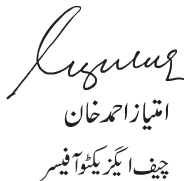 امتیاز احمد خان
چیف ایگزیکٹو آفیسر